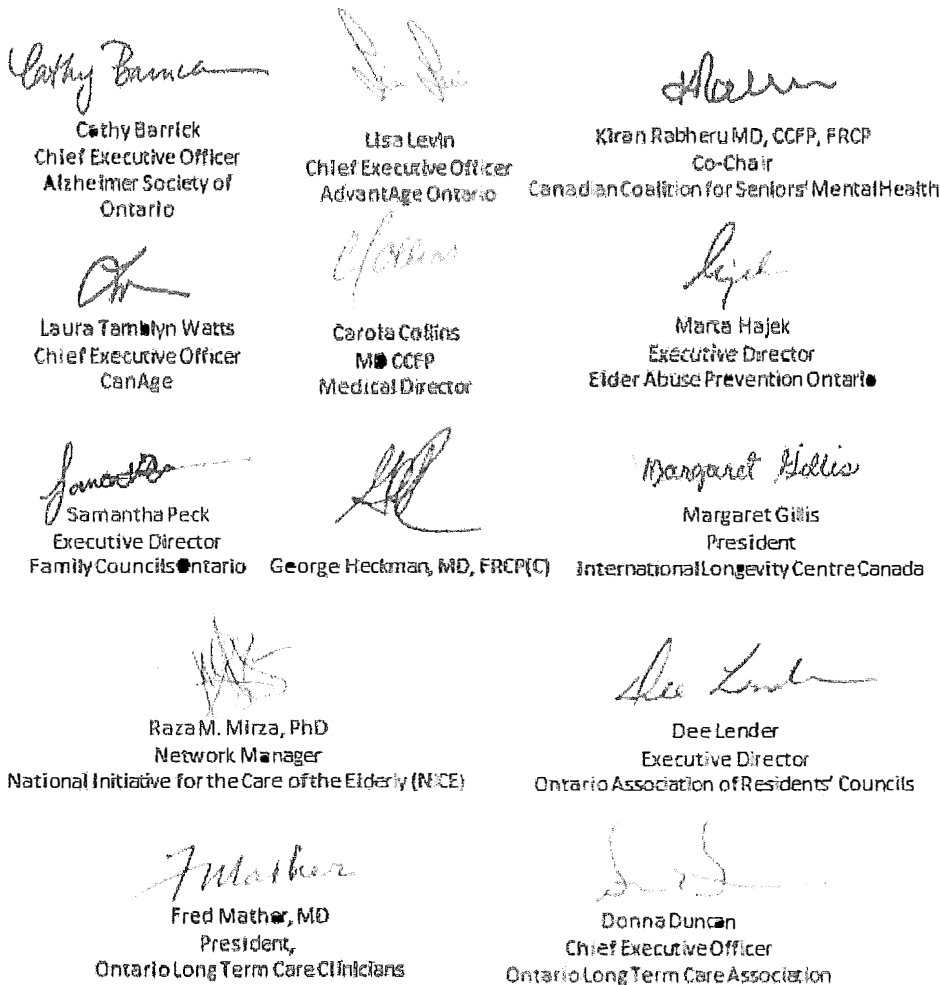 Cathy Barrick
Chief Executive Officer
Alzheimer Society of
Ontario
Lisa Levin
Chief Executive Officer
AdvantAge Ontario
Kiran Rabheru MD, CCFP, FRCP
Co-Chair
Canadian Coalition for Seniors' Mental Health
Laura Tamblyn Watts
Chief Executive Officer
CanAge
Carola Collins
MD CCFP
Medical Director
Marta Hajek
Executive Director
Elder Abuse Prevention Ontario
Samantha Peck
Executive Director
Family Councils Ontario
George Heckman, MD, FRCP(C)
Margaret Gillis
Margaret Gillis
President
International Longevity Centre Canada
Raza M. Mirza, PhD
Network Manager
National Initiative for the Care of the Elderly (NICE)
Dee Lender
Dee Lender
Executive Director
Ontario Association of Residents' Councils
F Mather
Fred Mather, MD
President,
Ontario Long Term Care Clinicians
Donna Duncan
Chief Executive Officer
Ontario Long Term Care Association